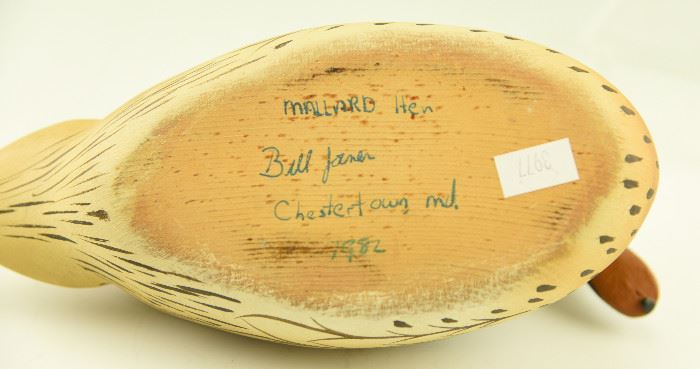 MALLARD Hen
Bill Joiner
Chestertown, md.
1982
3977